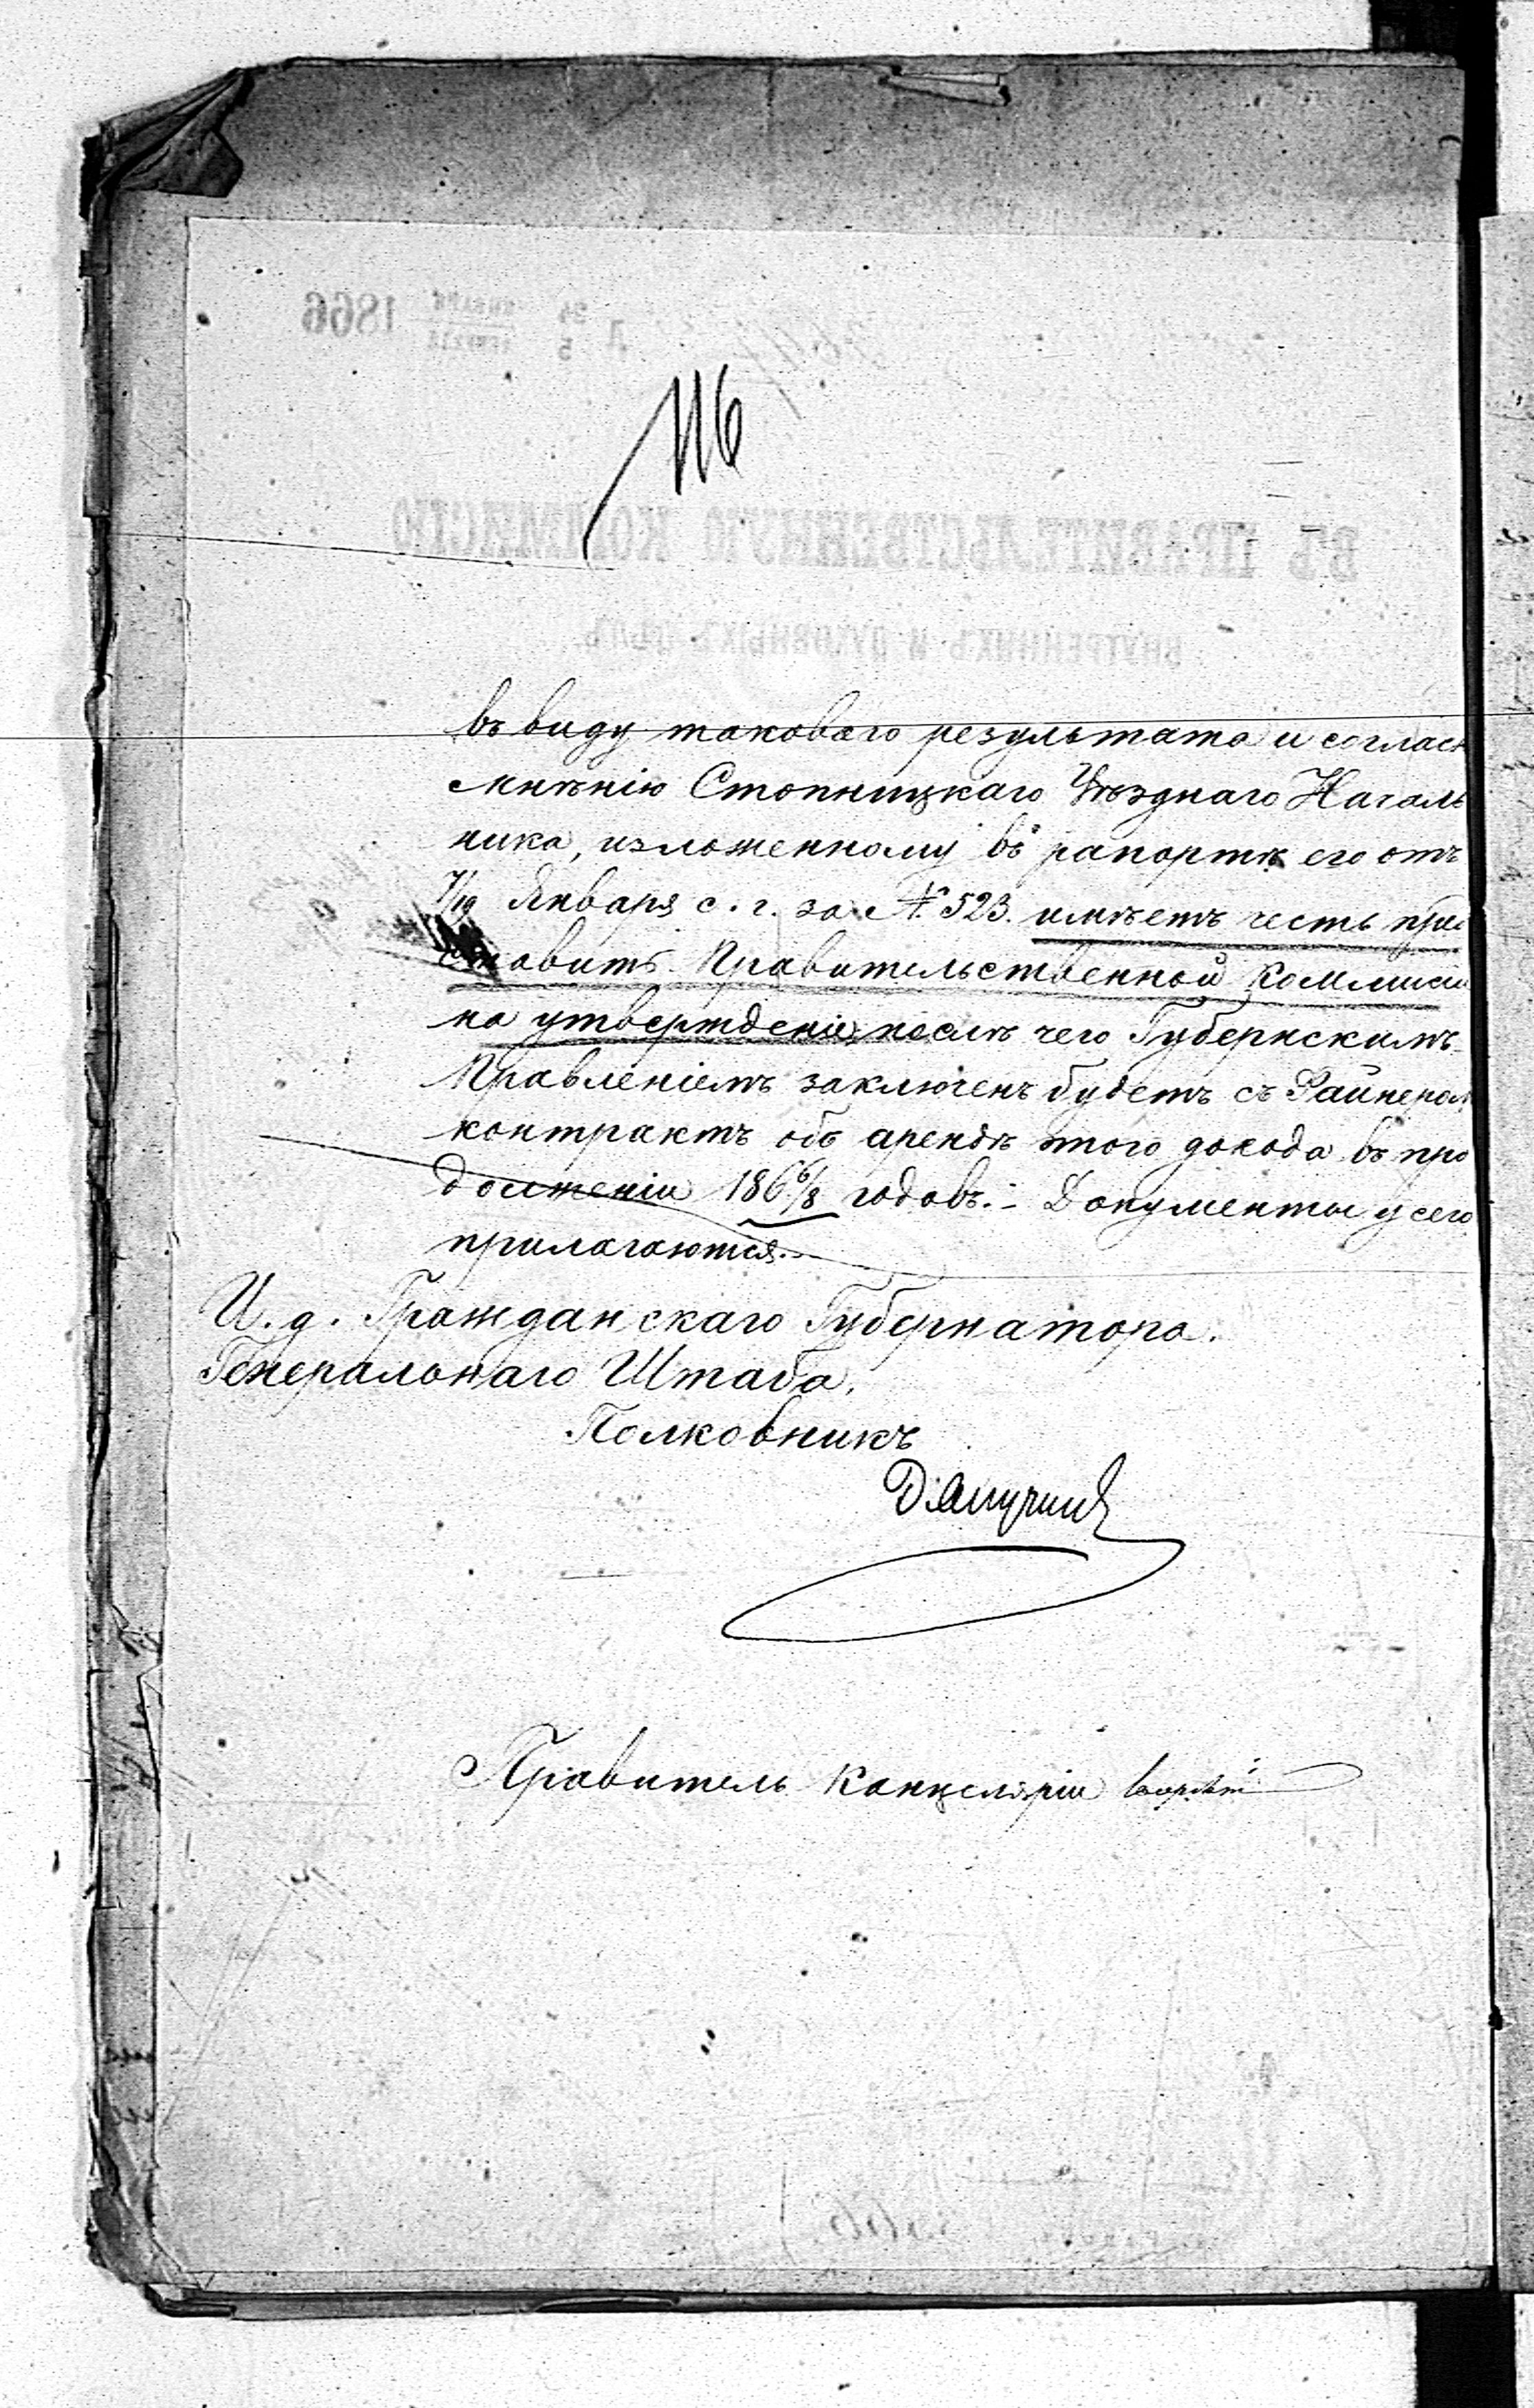 116
въ виду таковаго результата и соглас
мнѣнію Стопницкаго Уѣзднаго Началь
ника, изложенному въ рапортѣ его отъ
7/19 Января с. г. за №. 523. имѣетъ честь пред
ставить Правительственной Коммисіи
на утвержденіе, послѣ чего Губернскимъ
Правленіемъ заключенъ будетъ съ Райнером
контрактъ объ арендѣ этого дохода въ про
долженіи 186 6/8 годовъ. – Документы у сего
прилагаются.
И. д. Гражданскаго Губернатора.
Генеральнаго Штаба,
Полковникъ
Д. Анучинъ
Правитель Канцеляріи
1866
ВЪ ПРАВИТЕЛЬСТВЕННУЮ КОММИСІЮ
ВНУТРЕННИХЪ И ДУХОВНЫХЪ ДѢЛЪ